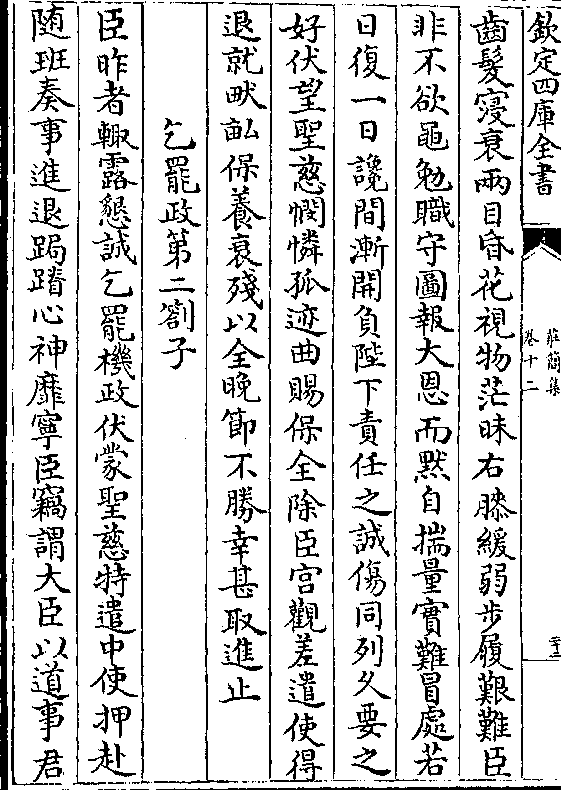 欽定四庫全書
莊簡集
卷十二
齒髮寖衰兩目昏花視物茫昧右膝緩弱步履艱難臣
非不欲黽勉職守圖報大恩而黙自揣量實難冒處若
日復一日讒間漸開負陛下責任之誠傷同列久要之
好伏望聖慈憫憐孤迹曲賜保全除臣宫觀差遣使得
退就畎畝保養衰殘以全晚節不勝幸甚取進止
乞罷政第二劄子
臣昨者輙露懇誠乞罷機政伏蒙聖慈特遣中使押赴
随班奏事進退跼蹐心神靡寧臣竊謂大臣以道事君